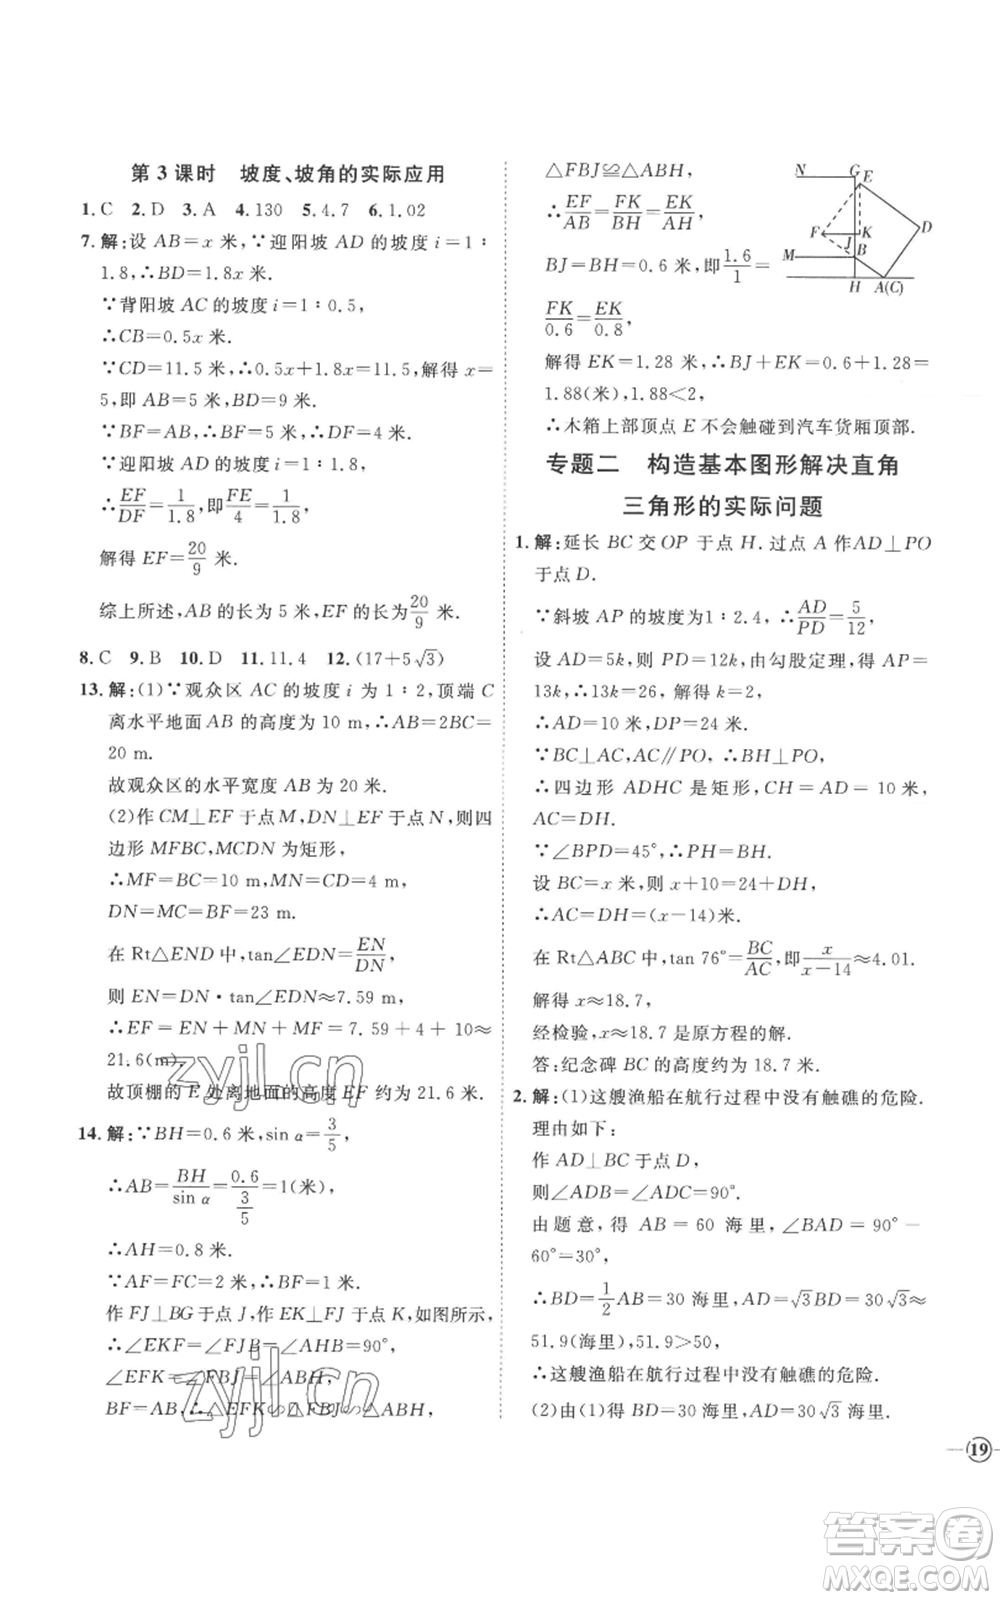 第3课时 坡度、坡角的实际应用
1.C 2.D 3.A 4.130 5.4.7 6.1.02
7.解:设 AB=x 米,∵迎阳坡 AD 的坡度 i=1∶
1.8,∴BD=1.8x 米.
∵背阳坡 AC 的坡度 i=1∶0.5,
∴CB=0.5x 米.
∵CD=11.5 米,∴0.5x+1.8x=11.5,解得 x=
5,即 AB=5 米,BD=9 米.
∵BF=AB,∴BF=5 米,∴DF=4 米.
∵迎阳坡 AD 的坡度 i=1∶1.8,
∴EF/DF=1/1.8,即FE/4=1/1.8,
解得 EF=20/9 米.
综上所述,AB 的长为 5 米,EF 的长为20/9米.
8.C 9.B 10.D 11.11.4 12.(17+5√3)
13.解:(1)∵观众区 AC 的坡度 i 为 1∶2,顶端 C
离水平地面 AB 的高度为 10 m,∴AB=2BC=
20 m.
故观众区的水平宽度 AB 为 20 米.
(2)作 CM⊥EF 于点 M,DN⊥EF 于点 N,则四
边形 MFBC,MCDN 为矩形,
∴MF=BC=10 m,MN=CD=4 m,
DN=MC=BF=23 m.
在 Rt△END 中,tan∠EDN=EN/DN,
则 EN=DN·tan∠EDN≈7.59 m,
∴EF=EN+MN+MF=7.59+4+10≈
21.6(m).
故顶棚的 E 处离地面的高度 EF 约为 21.6 米.
14.解:∵BH=0.6 米,sin α=3/5,
∴AB=BH/sin α=0.6/(3/5)=1(米),
∴AH=0.8 米.
∵AF=FC=2 米,∴BF=1 米.
作 FJ⊥BG 于点 J,作 EK⊥FJ 于点 K,如图所示,
∴∠EKF=∠FJB=∠AHB=90°,
∠EFK=∠FBJ=∠ABH,
BF=AB,∴△EFK∽△FBJ∽△ABH,
△FBJ≌△ABH,
∴EF/AB=FK/BH=EK/AH,
BJ=BH=0.6 米,即1.6/1=
FK/0.6=EK/0.8,
解得 EK=1.28 米,∴BJ+EK=0.6+1.28=
1.88(米),1.88<2,
∴木箱上部顶点 E 不会触碰到汽车货厢顶部.
N G E
F K D
J
M B
H A(C)
专题二 构造基本图形解决直角
三角形的实际问题
1.解:延长 BC 交 OP 于点 H.过点 A 作AD⊥PO
于点 D.
∵斜坡 AP 的坡度为1∶2.4,∴AD/PD=5/12,
设 AD=5k,则 PD=12k,由勾股定理,得 AP=
13k,∴13k=26,解得 k=2,
∴AD=10 米,DP=24 米.
∵BC⊥AC,AC∥PO,∴BH⊥PO,
∴四边形 ADHC 是矩形,CH=AD=10 米,
AC=DH.
∵∠BPD=45°,∴PH=BH.
设 BC=x 米,则 x+10=24+DH,
∴AC=DH=(x−14)米.
在 Rt△ABC 中,tan 76°=BC/AC,即x/(x−14)≈4.01.
解得 x≈18.7,
经检验,x≈18.7 是原方程的解.
答:纪念碑 BC 的高度约为 18.7 米.
2.解:(1)这艘渔船在航行过程中没有触礁的危险.
理由如下:
作 AD⊥BC 于点 D,
则∠ADB=∠ADC=90°.
由题意,得 AB=60 海里,∠BAD=90°−
60°=30°,
∴BD=1/2AB=30 海里,AD=√3BD=30√3≈
51.9(海里),51.9>50,
∴这艘渔船在航行过程中没有触礁的危险.
(2)由(1)得 BD=30 海里,AD=30√3海里.
19
zyjl.cn
zyjl.cn
答案卷
MXQE.COM